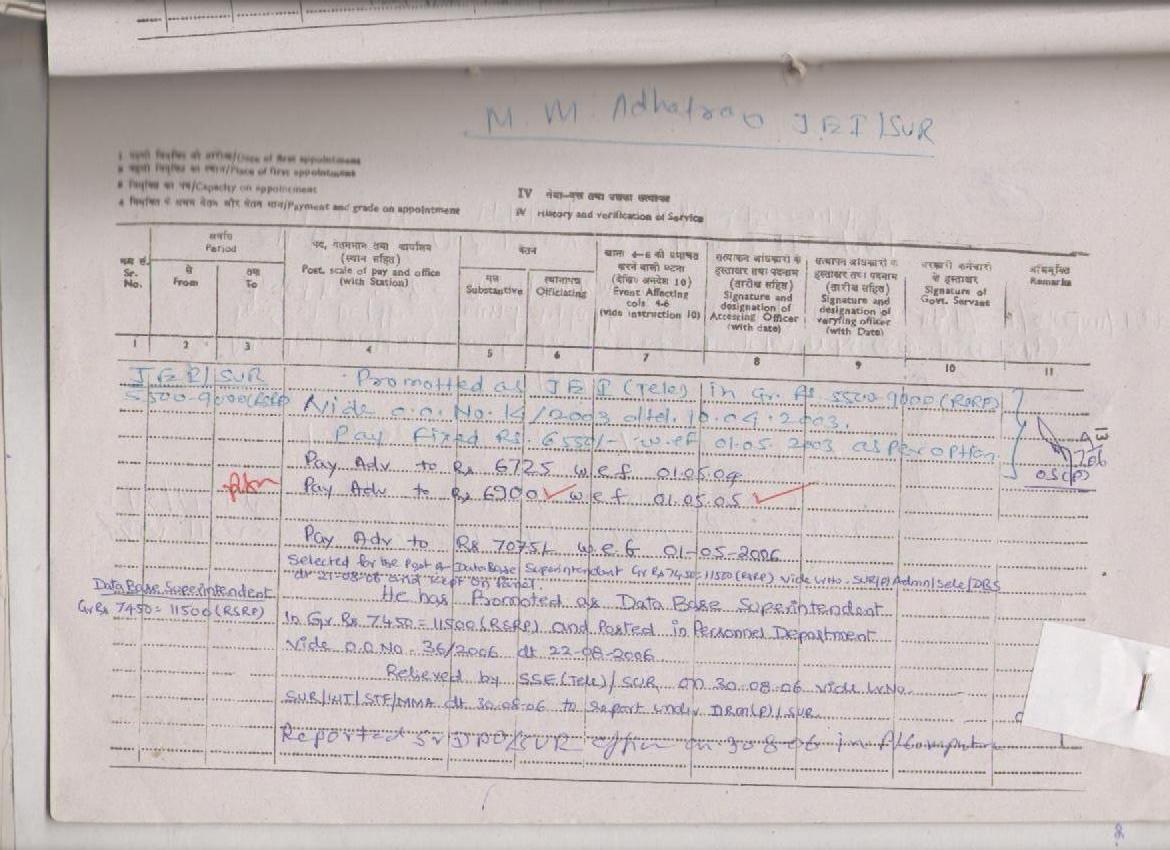 M. M. Adhatrao JEI/SUR
1 पहली नियुक्ति की तारीख/Date of first appointment
2 पहली नियुक्ति का स्थान/Place of first appointment
3 नियुक्ति का पद/Capacity on appointment
4 नियुक्ति के समय वेतन और वेतन मान/Payment and grade on appointment
IV सेवा-वृत्त तथा उसका सत्यापन
IV History and verification of Service
क्रम सं. Sr. No.
अवधि Period
से From
तक To
पद, वेतनमान तथा कार्यालय (स्थान सहित) Post, scale of pay and office (with Station)
वेतन
मूल Substantive
स्थानापन्न Officiating
खाना 4-6 को प्रभावित करने वाली घटना (देखिए अनुदेश 10) Event Affecting cols 4-6 (vide instruction 10)
(तारीख सहित) Signature and designation of Accesting Officer (with date)
सत्यापन अधिकारी के हस्ताक्षर तथा पदनाम (तारीख सहित) Signature and designation of veryfing officer (with Date)
सरकारी कर्मचारी के हस्ताक्षर Signature of Govt. Servant
अभियुक्ति Remarks
1 2 3 4 5 6 7 8 9 10 11
JEI/SUR Promotted as JEI (Tele) in Gr. Rs 5500-9000 (RSRP)
5500-9000 (RSRP) Vide O.O. No. 14/2003 dtd. 10.04.2003.
Pay Fixed Rs. 6550/- w.e.f 01.05.2003 as per option.
Pay Adv to Rs 6725 w e f 01.05.04
Pay Adv to Rs 6900 w e f 01.05.05
OS(P)
Pay Adv to Rs 7075/- w.e.f 01-05-2006
Selected for the Post of DataBase Superintendent Gr Rs 7450=11500 (RSRP) vide L.No. SUR/P/Admn/Sele/DBS
dt 21-08-06 and kept on Panel.
DataBase Superintendent He has Promoted as Data Base Superintendent
Gr Rs 7450=11500 (RSRP) In Gr. Rs. 7450=11500 (RSRP) and Posted in Personnel Department
Vide O.O No. 36/2006 dt 22-08-2006
Relieved by SSE (Tele)/SUR on 30.08.06 vide L.No.
SUR/WT/STF/MMA dt 30.08.06 to report under DRM(P)/SUR
Reported Sr DPO/SUR office on 30.8.06 in